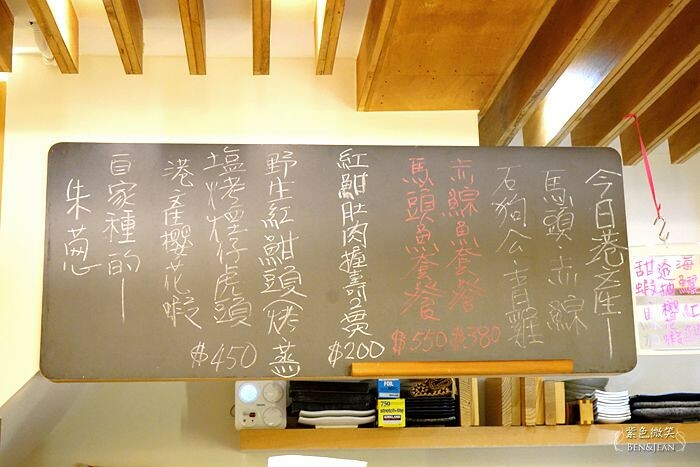 今日巷產—
馬頭、赤鯮
石狗公、青雞
赤鯮魚套餐 $380
馬頭魚套餐 $550
紅魽肚肉握壽2貫 $200
野生紅魽頭(烤.蒸
塩烤檉仔虎頭 $450
港產櫻花蝦
自家種的—
朱蔥
海鱺
透抽
甜蝦
紅
櫻花蝦
FOIL
750
stretch-tite
KIRKLAND
紫色微笑
BEN&JEAN